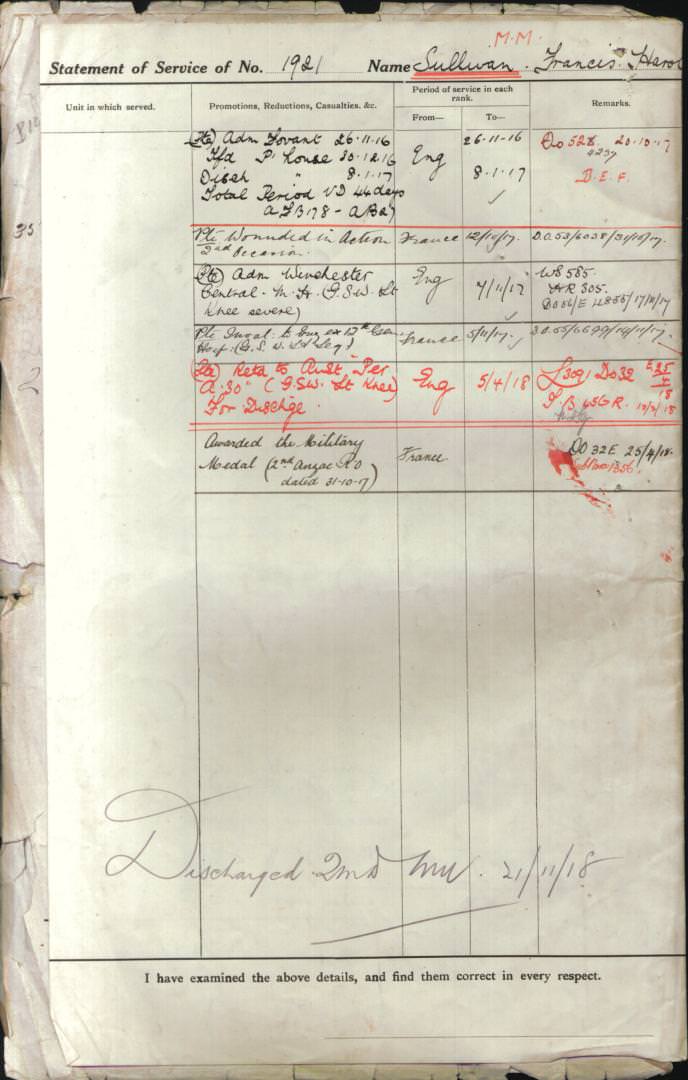 M.M.
Statement of Service of No. 1921 Name Sullivan. Francis. Harol
Unit in which served.
Promotions, Reductions, Casualties, &c.
Period of service in each rank.
From—
To—
Remarks.
(Pte) Adm Fovant 26-11-16 Eng 26-11-16 Do 528. 20-10-17
Tfd P. house 30-12-16
Disch " 8.1.17 8.1.17 B.E.F.
Total Period VD 44 days
A.F.B178 -
35
Pte Wounded in Action France 12/10/17. D.O.53/6038/31/10/17.
2nd Occasion.
(Pte) Adm Winchester Eng 7/11/17 WS 585.
Central. M.H. (G.S.W. Lt HR 305.
Knee severe)
Pte Inval: to Eng ex 12th Gen France 5/11/17. D.O.55/6699/14/11/17
Hosp: (G.S.W. Lt Leg)
2
(Pte) Retd to Aust Per Eng 5/4/18
A.30" (G.S.W. Lt Knee)
For Dischge.
Awarded the Military France DO 32E 25/4/18.
Medal (2nd Anzac R O
dated 31-10-17)
Discharged 2 MD MU. 21/11/18
I have examined the above details, and find them correct in every respect.